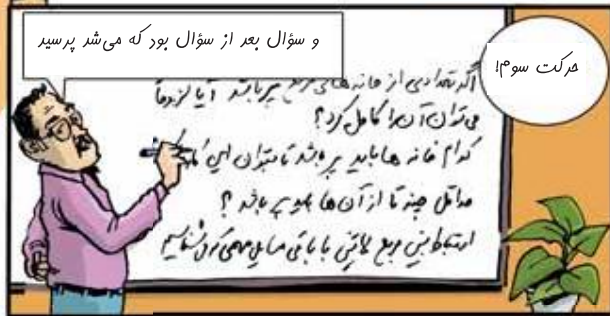 و سؤال بعد از سؤال بود که می‌شد پرسید
حرکت سوم!
اگر تعدادی از خانه‌های مربع پر باشد آیا لزوماً
می‌توان آن را کامل کرد؟
کدام خانه‌ها باید پر باشد تا بتوان این کار
حداقل چند تا از آن‌ها باید پر باشد؟
ارتباط بین مربع لاتین با باقی